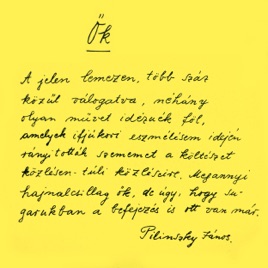 Ők
A jelen lemezen, több száz
közül válogatva, néhány
olyan művet idézünk föl,
amelyek ifjúkori eszmélésem idején
rányitották szememet a költészet
közlésen-túli közléseire. Megannyi
hajnalcsillag ők, de úgy, hogy su-
garukban a befejezés is ott van már.
Pilinszky János.